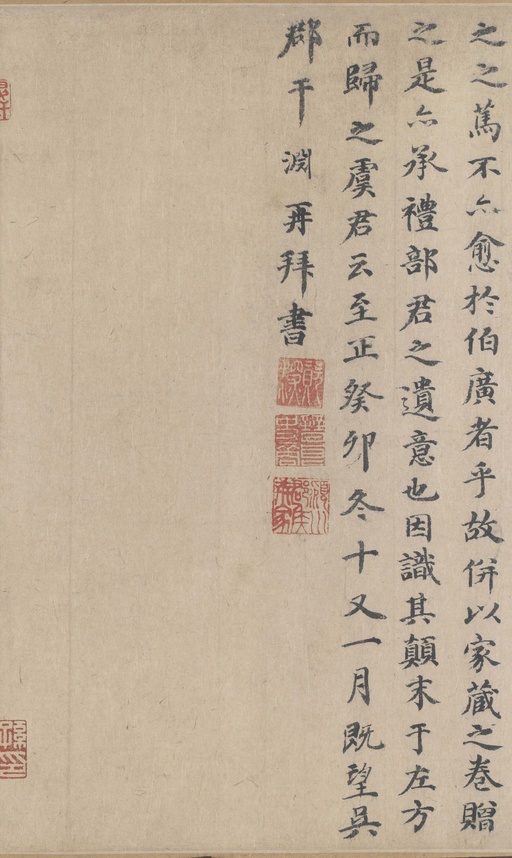 之之篤不亦愈於伯廣者乎故併以家藏之卷贈
之是亦承禮部君之遺意也因識其顛末于左方
而歸之虞君云至正癸卯冬十又一月既望吳
郡干淵再拜書